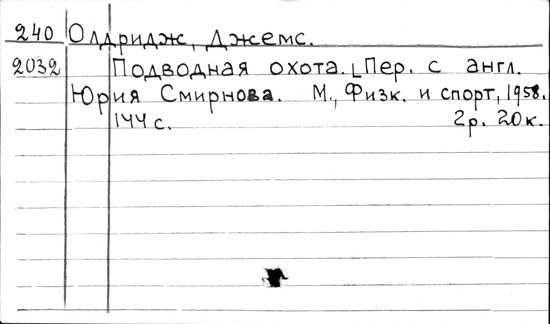 240 Олдридж, Джемс.
2032 Подводная охота. [Пер. с англ.
Юрия Смирнова. М., Физк. и спорт, 1958.
144 с. 2р. 20к.